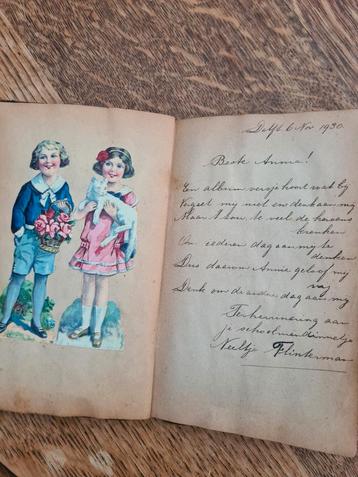 Delft 6 Nov 1930.
Beste Anna!
Een album versje hoort wat bij
Vergeet mij niet en denk aan mij
Maar 't zou te veel de harsens
krenken
Om iederen dag aan mij te
denken
Dus daarom Annie geloof mij
vrij
Denk om de andere dag aan mij
Ter herinnering aan
je schoolvriendinnetje
Neeltje Flinterman